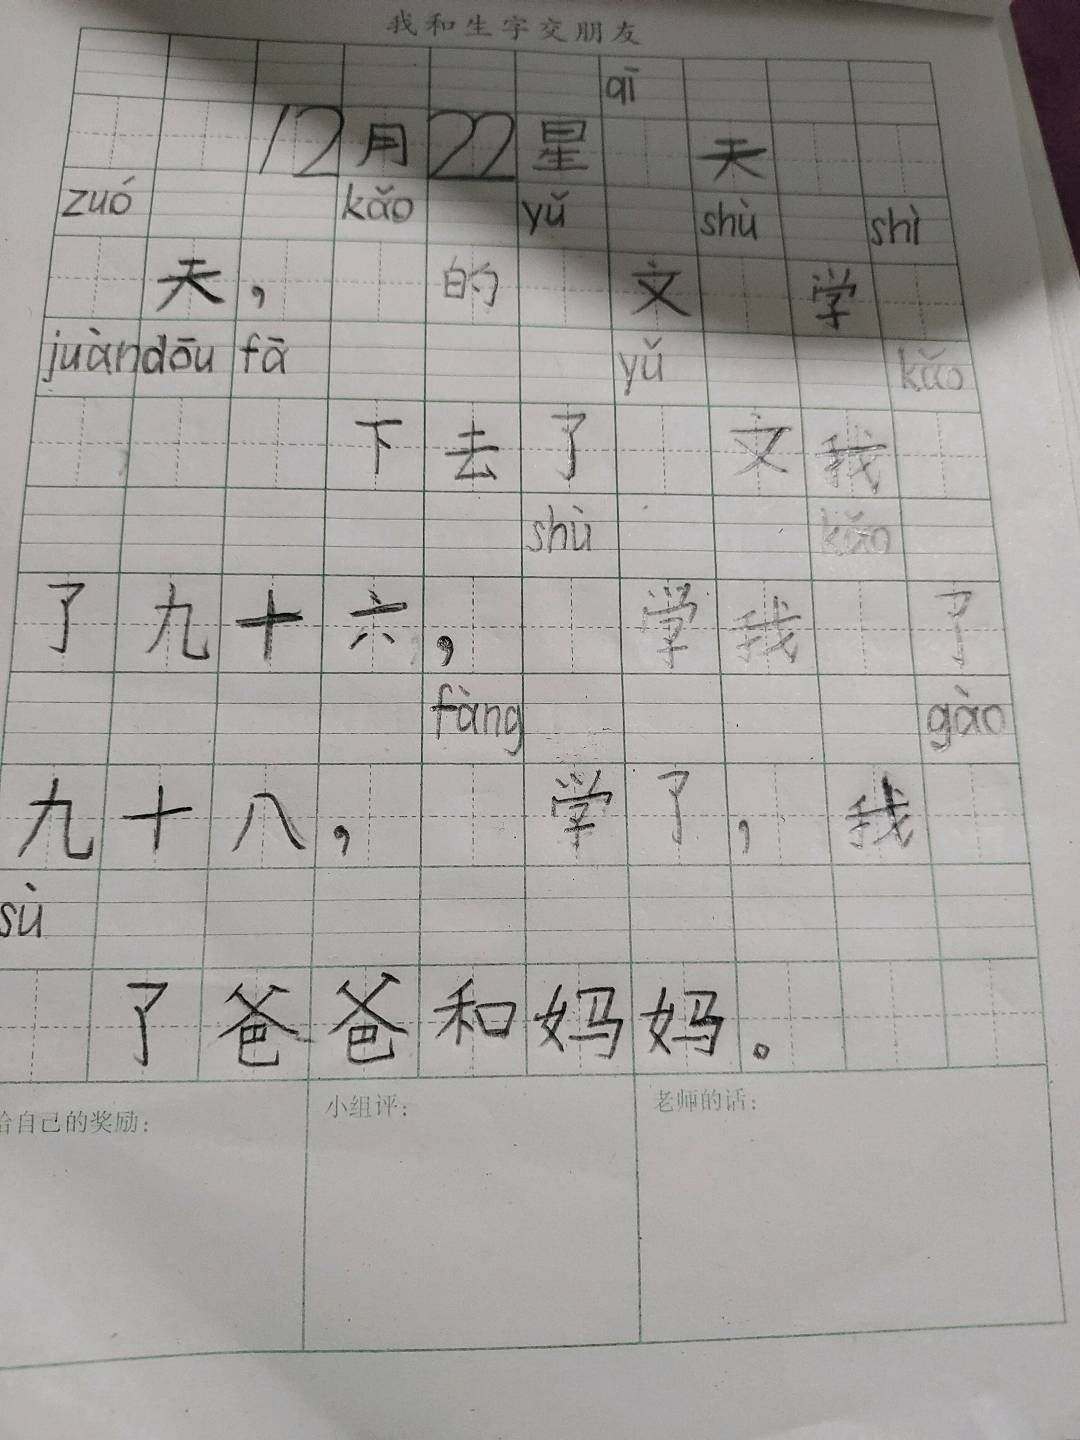 我和生字交朋友
qī
12月22星 天
zuó kǎo yǔ shù shì
天， 的 文 学
juàn dōu fā yǔ kǎo
下去了 文我
shù kǎo
了九十六， 学我 了
fàng gào
九十八， 学了，我
sù
了爸爸和妈妈。
给自己的奖励：
小组评：
老师的话：